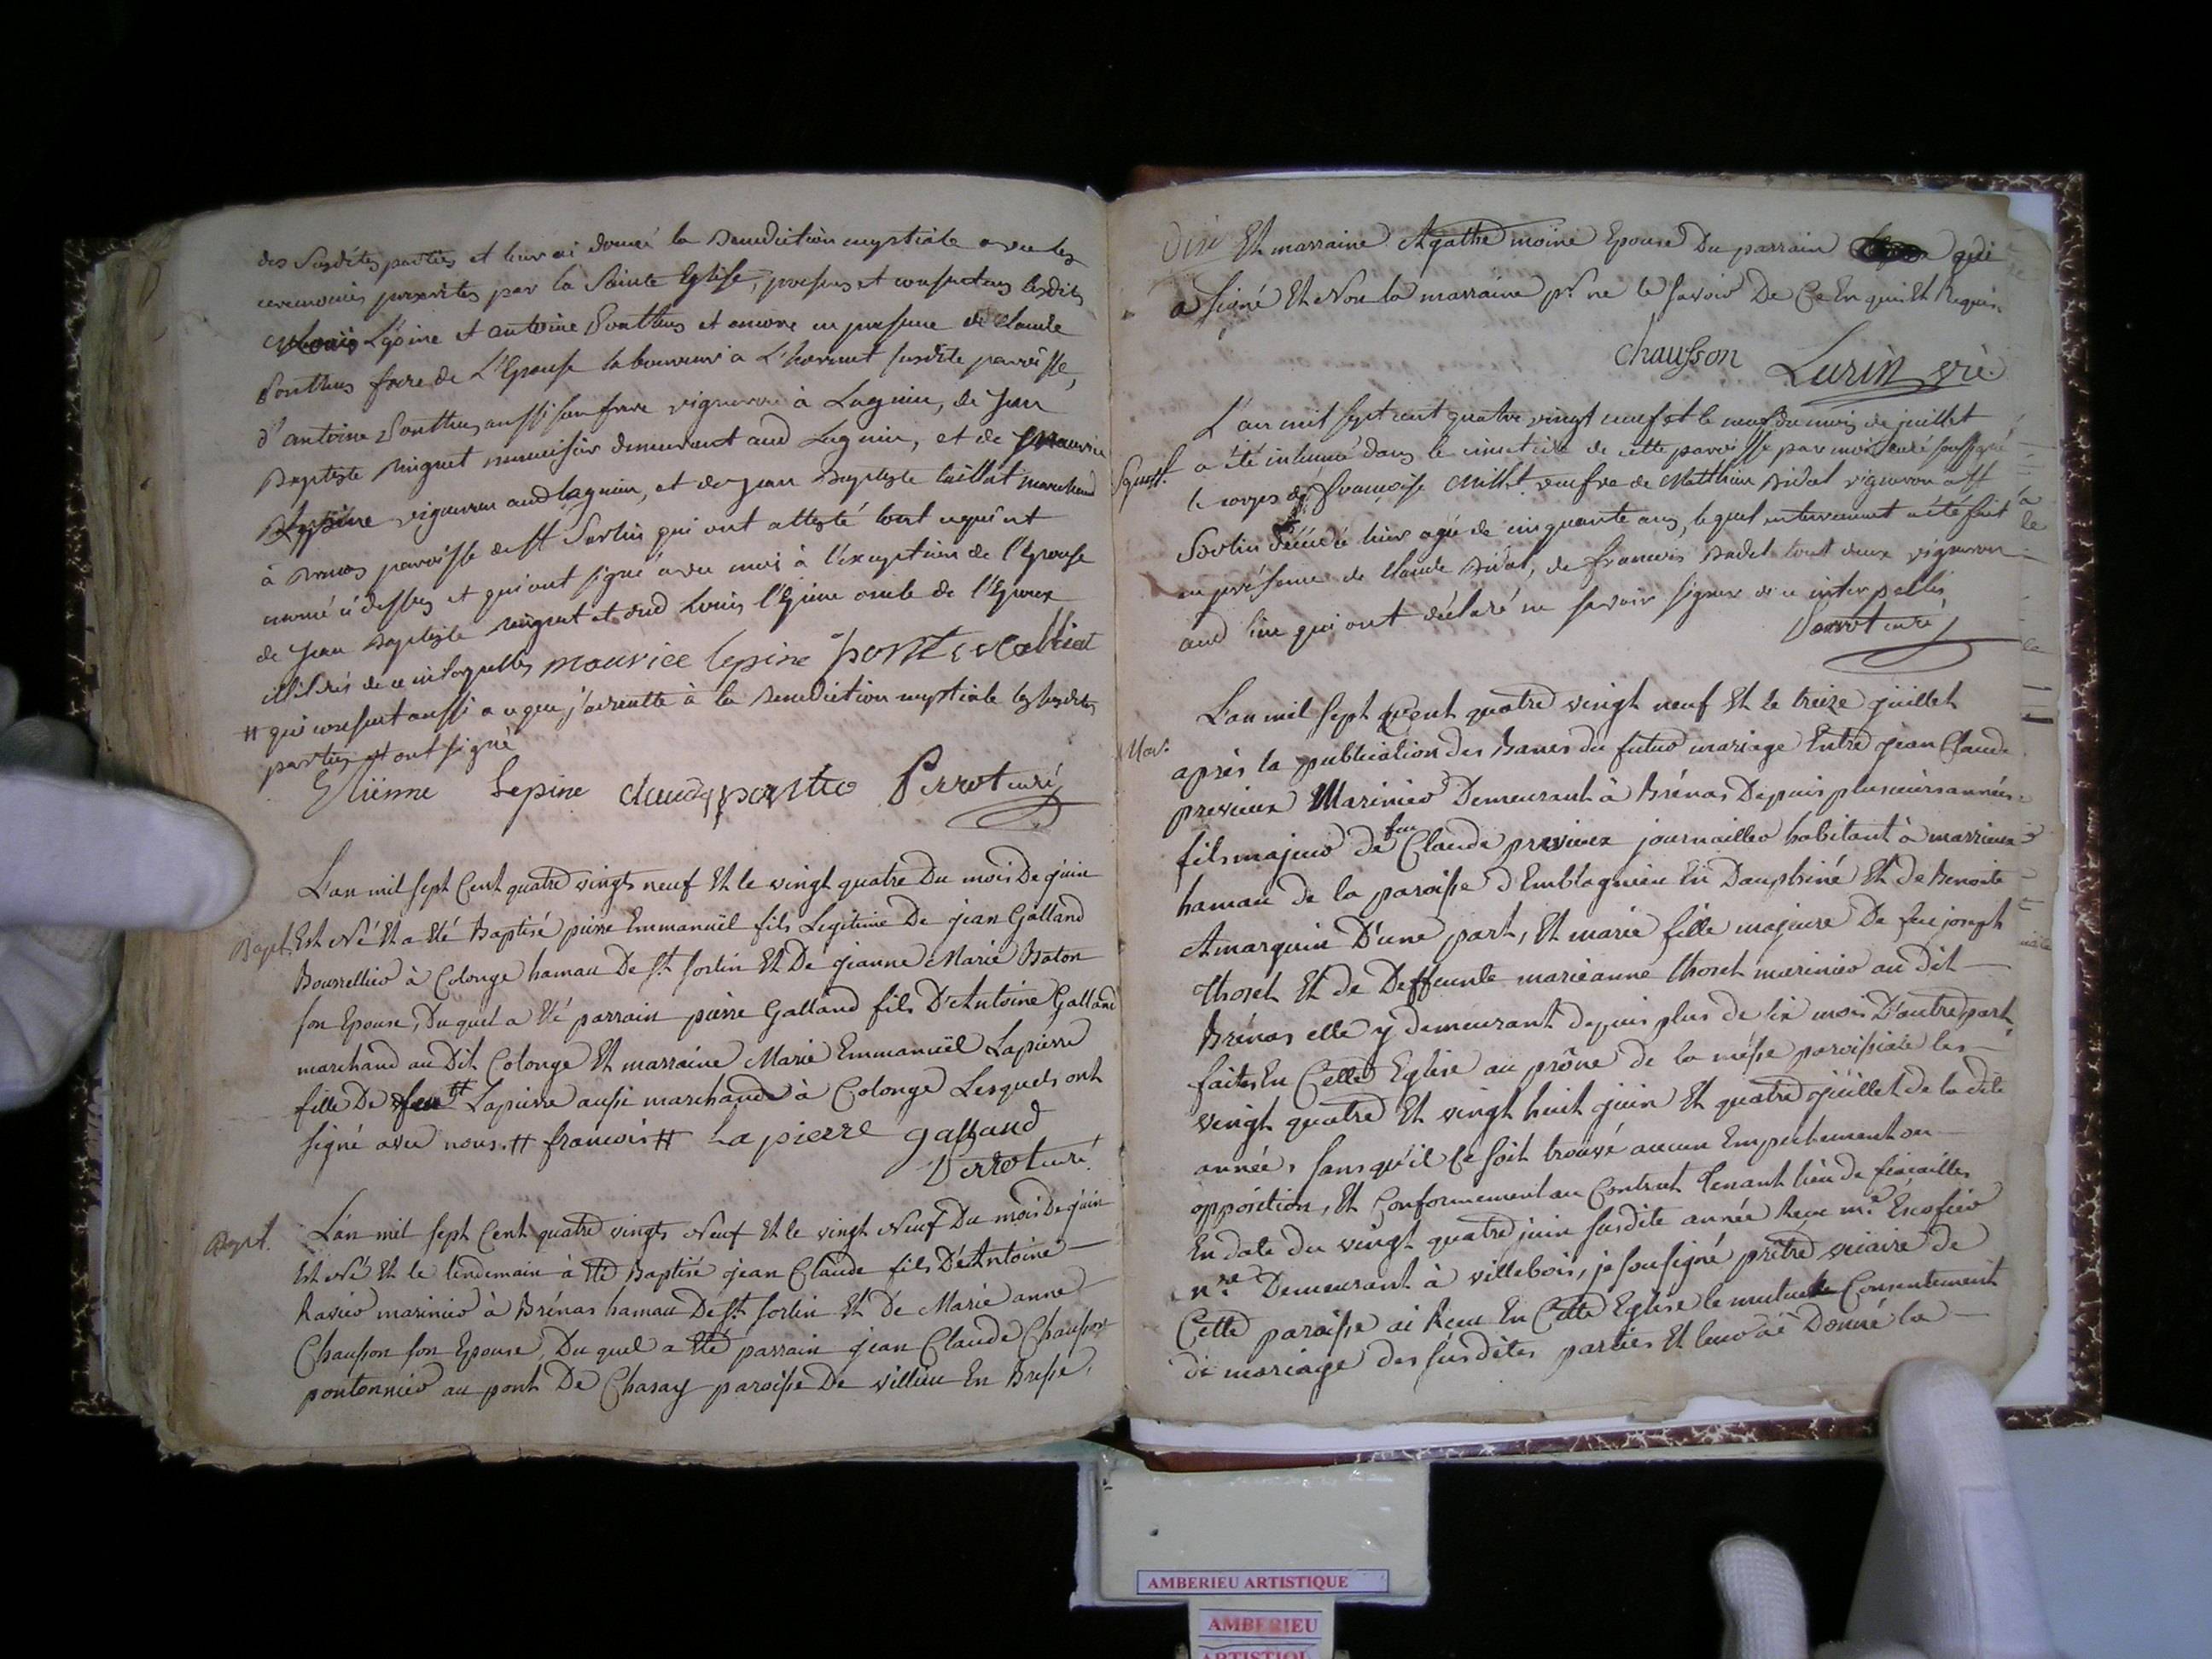 des susdites parties et leur ai donné la Benediction nuptiale avec les
ceremonies prescrites par la Sainte Eglise, presens et consentans lesdits
Louis Lépine et antoine Ponthus et encore en presence de claude
Ponthus frere de L'Epouse laboureur a susdite parroisse,
d'antoine Ponthus aussi son frere vigneron à Lagnieu, de Jean
Baptiste Minguet menuisier demeurant aud Lagnieu, et de Maurice
Lepine vigneron aud lagnieu, et de Jean Baptiste caillat marchand
à Brenas paroisse de St Sorlin qui ont attesté tout
nommé ci dessus et qui ont signé avec moi à l'exception de l'Epouse
de Jean Baptiste minguet et dud Louis l'Epine oncle de l'Epoux
illitérés de ce interpellés maurice lepine
# qui consent aussi a ce que à la Benediction nuptiale les susdites
parties et ont signé
Etiénne Lepine claude pontus Perrot curé
L'an mil sept Cent quatre vingts neuf Et le vingt quatre Du mois De juin
Bapt. Est Né Et a Eté Baptisé pierre Emmanuël fils Legitime De jean Galland
Bourrellier à Colonge hameau De St Sorlin Et De jeanne Marie Baton
son Epouse, Du quel a Eté parrain pierre Galland fils D'Antoine Galland
marchand au Dit Colonge Et marraine Marie Emmanuël Lapierre
fille De feu # Lapierre aussi marchand à Colonge Lesquels ont
signé avec nous. # francois # Lapierre galland
Perrot curé
Bapt. L'an mil sept Cent quatre vingts Neuf Et le vingt Neuf Du mois De juin
Est Né Et le lendemain à Eté Baptisé jean Claude fils D'Antoine
Ravier marinier à Brénas hameau De St Sorlin Et De Marie anne
Chausson son Epouse, Du quel a Eté parrain jean Claude Chausson
pontonnier au pont De Chasay paroisse De villieu En Bresse,
Et marraine Agathe moine Epouse Du parrain qui
a signé Et Non la marraine pr. ne le savoir De Ce Enquis Et Requis.
chausson Lurin vic
L'an mil sept cent quatre vingt neuf et le neuf du mois de juillet
Sepult. a été inhumé dans le cimetiere de cette paroisse par moi curé soussigné
le corps de françoise Millet veufve de Matthieu Bidal vigneron a St
Sorlin décédé hier agée de cinquante ans, lequel enterrement a été fait
en présence de Claude Bidal, de francois Badet tout deux vigneron
aud lieu qui ont déclaré ne savoir signer de ce interpellés
Perrot curé
L'an mil sept Cent quatre vingt neuf Et le treize juillet
Mar. après la publication des Banes du futur mariage Entre jean Claude
previeux Marinier Demeurant à Brénas Depuis plusieurs années
fils majeur de feu Claude previeux journaillier habitant à marrieux
hameau de la paroisse d'Emblagnieu En Dauphiné Et de Benoite
Amarquin D'une part, Et marie fille majeure De feu joseph
thoret Et de Deffeunte marieanne thoret marinier au Dit
Brénas elle y demeurant depuis plus de six mois D'autre part,
faites En Cette Eglise au prône de la messe paroissiale les
vingt quatre Et vingt huit juin Et quatre juillet de la dite
année, sans qu'il se soit trouvé aucun Empechement ou
opposition, Et Conformement au Contrat tenant lieu de fiancailles
En date du vingt quatre juin susdite année Recu me Escofier
nre. Demeurant à villebois, je sousigné prêtre vicaire de
Cette paroisse ai Recu En Cette Eglise le mutuele Consentement
de mariage des susdites parties Et leur ai Donné la
AMBERIEU ARTISTIQUE
AMBERIEU
ARTISTIQUE